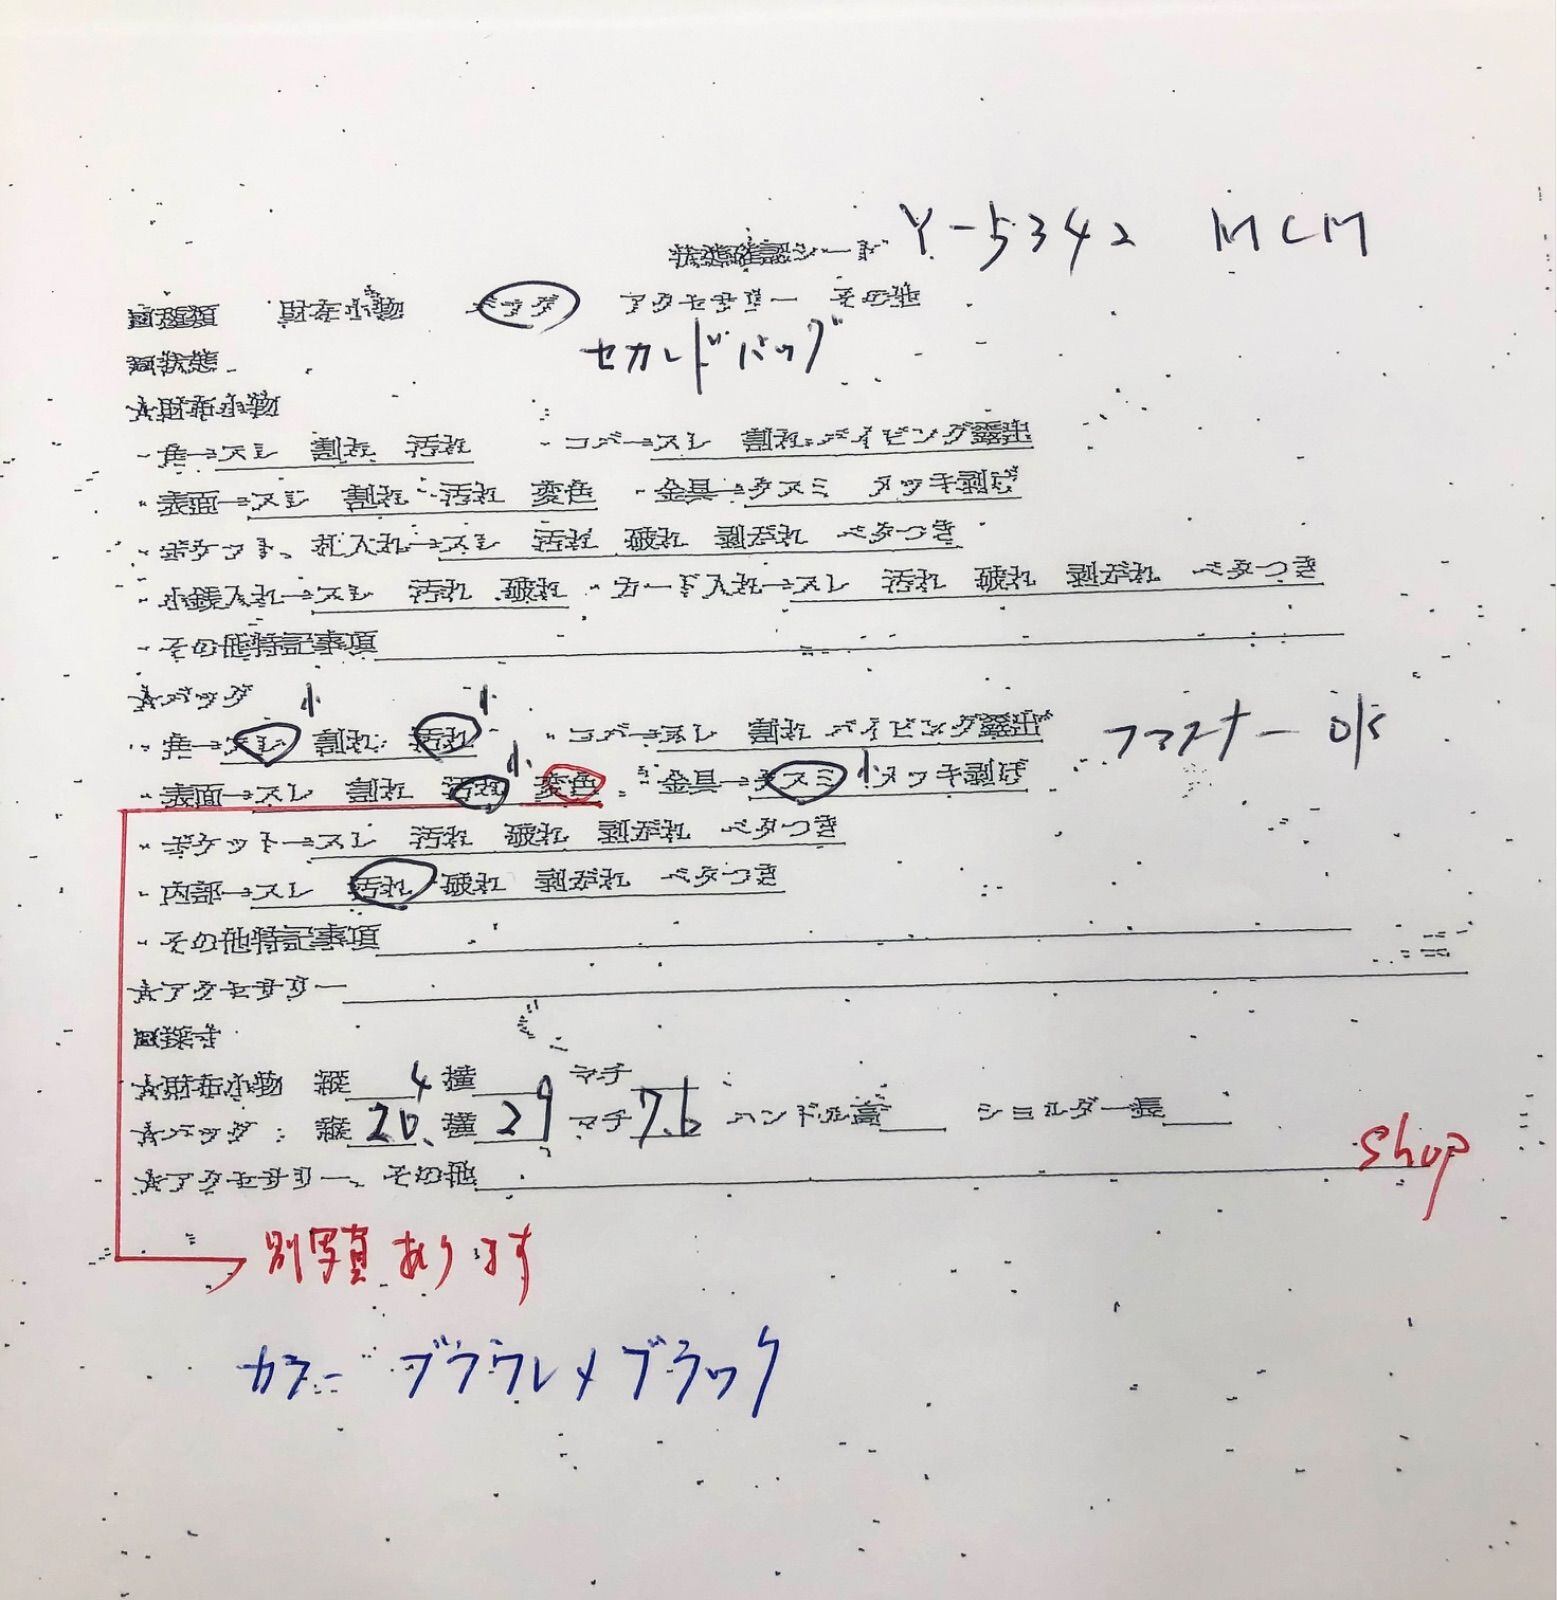 状態確認シート Y-5342 MCM
■種類 財布小物 バッグ アクセサリー その他
セカンドバッグ
■状態
☆財布小物
・角→スレ 割れ 汚れ ・コバ→スレ 割れ パイピング露出
・表面→スレ 割れ 汚れ 変色 ・金具→クスミ メッキ剥げ
・ポケット、札入れ→スレ 汚れ 破れ 剥がれ ベタつき
・小銭入れ→スレ 汚れ 破れ ・カード入れ→スレ 汚れ 破れ 剥がれ ベタつき
・その他特記事項
☆バッグ 小 小
・角→スレ 割れ 汚れ ・コバ→スレ 割れ パイピング露出 ファスナー
・表面→スレ 割れ 汚れ 小 変色 ・金具→クスミ 小 メッキ剥げ
・ポケット→スレ 汚れ 破れ 剥がれ ベタつき
・内部→スレ 汚れ 破れ 剥がれ ベタつき
・その他特記事項
☆アクセサリー
■採寸
☆財布小物 縦 4 横 マチ
☆バッグ 縦 20 横 29 マチ 7.6 ハンドル高 ショルダー長
☆アクセサリー、その他 shop
別写真あります
カラー ブラウン×ブラック